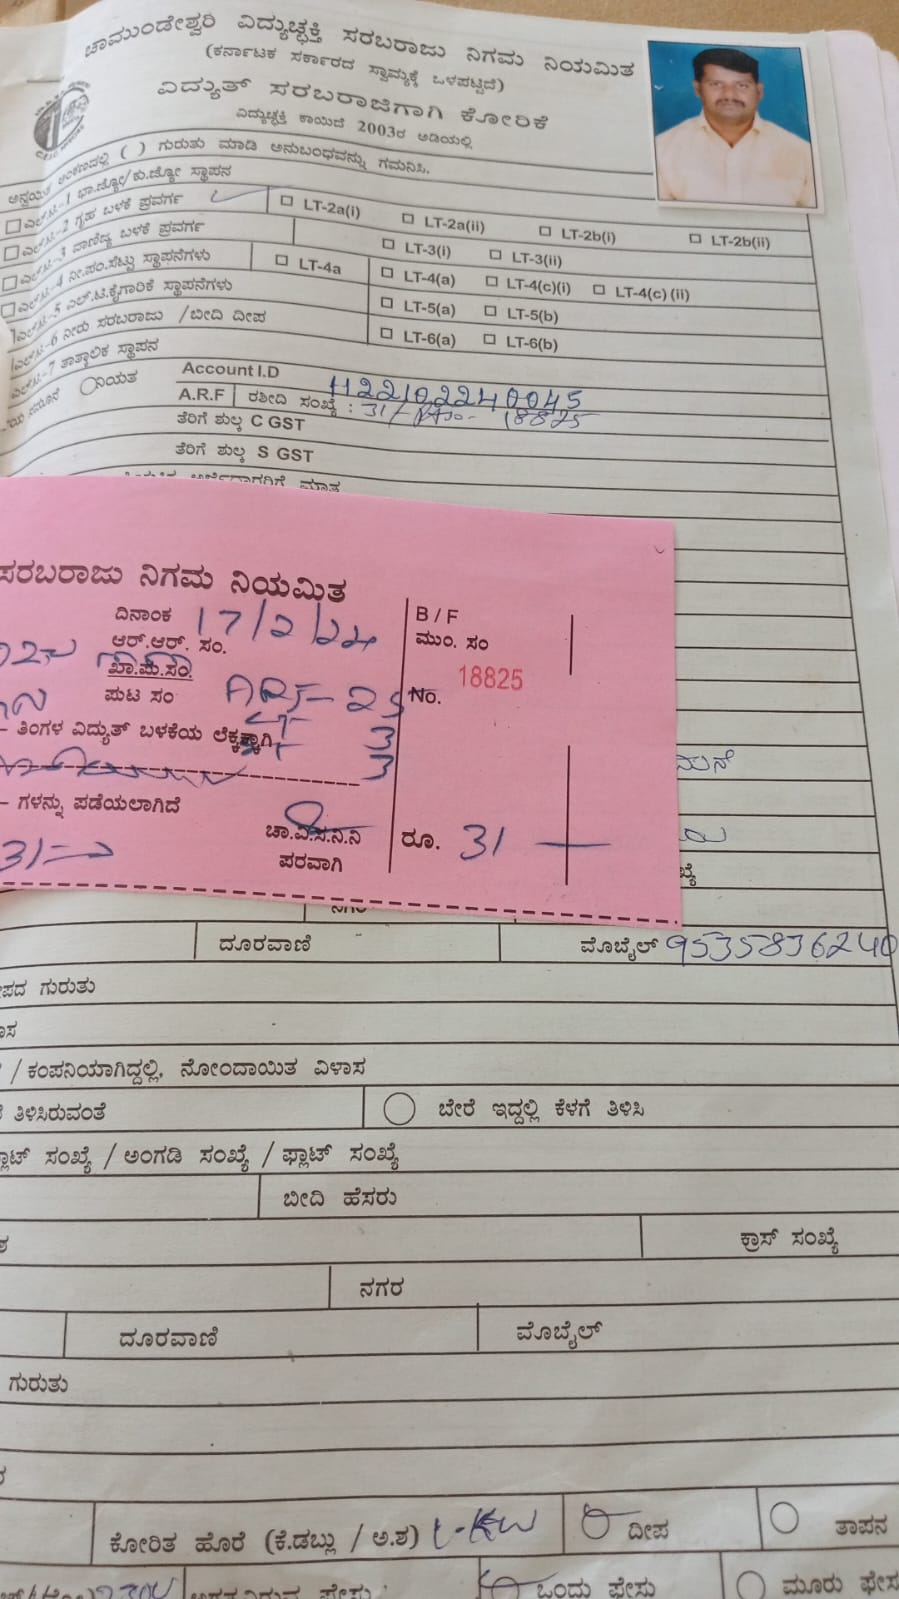 ಚಾಮುಂಡೇಶ್ವರಿ ವಿದ್ಯುಚ್ಛಕ್ತಿ ಸರಬರಾಜು ನಿಗಮ ನಿಯಮಿತ
(ಕರ್ನಾಟಕ ಸರ್ಕಾರದ ಸ್ವಾಮ್ಯಕ್ಕೆ ಒಳಪಟ್ಟಿದೆ)
ವಿದ್ಯುತ್ ಸರಬರಾಜಿಗಾಗಿ ಕೋರಿಕೆ
ವಿದ್ಯುಚ್ಛಕ್ತಿ ಕಾಯಿದೆ 2003ರ ಅಡಿಯಲ್ಲಿ
ಅನ್ವಯಿತ ಅಂಕಣದಲ್ಲಿ ( ) ಗುರುತು ಮಾಡಿ ಅನುಬಂಧವನ್ನು ಗಮನಿಸಿ.
ಎಲ್.ಟಿ.-1 ಭಾ.ಜ್ಯೋ/ಕು.ಜ್ಯೋ ಸ್ಥಾಪನ
ಎಲ್.ಟಿ.-2 ಗೃಹ ಬಳಕೆ ಪ್ರವರ್ಗ LT-2a(i) LT-2a(ii) LT-2b(i) LT-2b(ii)
ಎಲ್.ಟಿ.-3 ವಾಣಿಜ್ಯ ಬಳಕೆ ಪ್ರವರ್ಗ LT-3(i) LT-3(ii)
ಎಲ್.ಟಿ.-4 ನೀ.ಪಂ.ಸೆಟ್ಟು ಸ್ಥಾಪನೆಗಳು LT-4a LT-4(a) LT-4(c)(i) LT-4(c) (ii)
ಎಲ್.ಟಿ.-5 ಎಲ್.ಟಿ.ಕೈಗಾರಿಕೆ ಸ್ಥಾಪನೆಗಳು LT-5(a) LT-5(b)
ಎಲ್.ಟಿ.-6 ನೀರು ಸರಬರಾಜು /ಬೀದಿ ದೀಪ LT-6(a) LT-6(b)
ಎಲ್.ಟಿ.-7 ತಾತ್ಕಾಲಿಕ ಸ್ಥಾಪನ
ನಿಯತ Account I.D 1122102240045
A.R.F ರಶೀದಿ ಸಂಖ್ಯೆ : 31/- 18825
ತೆರಿಗೆ ಶುಲ್ಕ C GST
ತೆರಿಗೆ ಶುಲ್ಕ S GST
ಸರಬರಾಜು ನಿಗಮ ನಿಯಮಿತ
ದಿನಾಂಕ 17/2/24 B / F
ಆರ್.ಆರ್. ಸಂ. ಮುಂ. ಸಂ
ಖಾ.ಮ.ಸಂ.
ಪುಟ ಸಂ ARF-25 No. 18825
- ತಿಂಗಳ ವಿದ್ಯುತ್ ಬಳಕೆಯ ಲೆಕ್ಕಕ್ಕಾಗಿ 3
3
- ಗಳನ್ನು ಪಡೆಯಲಾಗಿದೆ
ಚಾ.ವಿ.ಸ.ನಿ.ನಿ ರೂ. 31
31 ಪರವಾಗಿ
ದೂರವಾಣಿ ಮೊಬೈಲ್ 9535836240
ಗುರುತು
/ ಕಂಪನಿಯಾಗಿದ್ದಲ್ಲಿ, ನೋಂದಾಯಿತ ವಿಳಾಸ
ತಿಳಿಸಿರುವಂತೆ ಬೇರೆ ಇದ್ದಲ್ಲಿ ಕೆಳಗೆ ತಿಳಿಸಿ
ಸಂಖ್ಯೆ / ಅಂಗಡಿ ಸಂಖ್ಯೆ / ಫ್ಲಾಟ್ ಸಂಖ್ಯೆ
ಬೀದಿ ಹೆಸರು
ಕ್ರಾಸ್ ಸಂಖ್ಯೆ
ನಗರ
ದೂರವಾಣಿ ಮೊಬೈಲ್
ಗುರುತು
ಕೋರಿತ ಹೊರೆ (ಕೆ.ಡಬ್ಲು / ಅ.ಶ) 1-KW ದೀಪ ತಾಪನ
230V ಒಂದು ಫೇಸು ಮೂರು ಫೇಸು